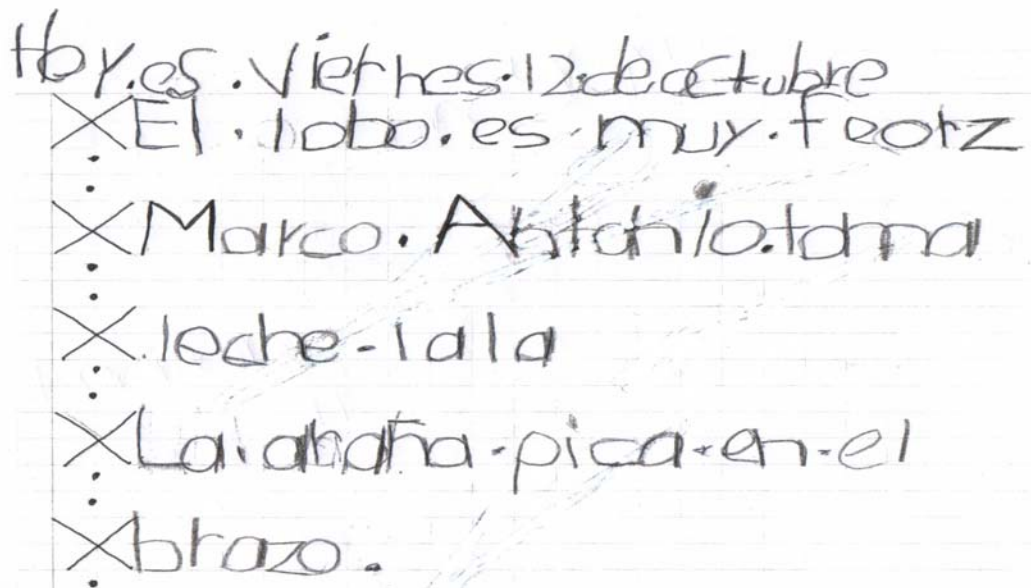 Hoy.es.Viernes.12.de octubre
El.lobo.es.muy.feorz
Marco.Antonio.toma
.leche-lala
La.araña.pica.en.el
brazo.